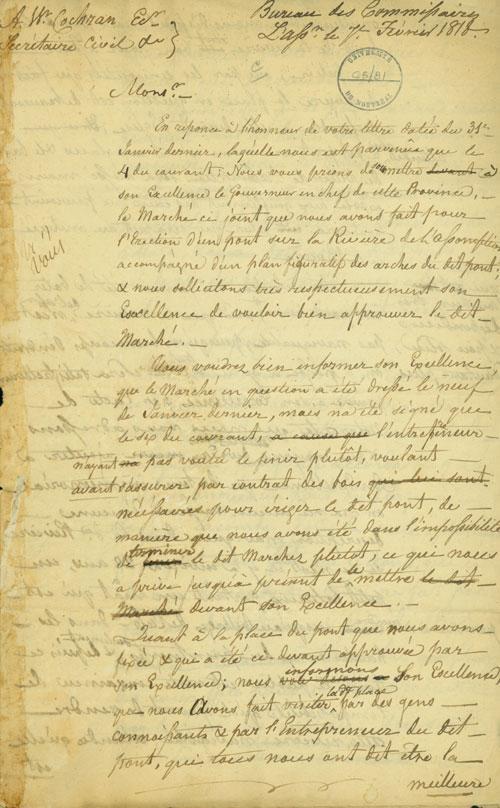 A. Wm. Cochran Ecr
Secrétaire Civil &c }
Bureau des Commissaires
L'assn. le 7e. Février 181
UNIVERSITÉ
G5/81
DE MONTRÉAL
Monsr.
En réponce à l'honneur de votre lettre datée du 31er
Janvier dernier, laquelle nous est parvenüe que le
4 du courant; Nous vous prions de mettre devant à
son Excellence le Gouverneur en chef de cette Province,
le Marché ci joint que nous avons fait pour
l'Erection d'un pont sur la Rivière de L'assomption
accompagné d'un plan figuratif des arches du dit pont,
& nous sollicitons très respectueusement son
Exccellence de vouloir bien approuver le dit
Marché.
Vous voudrez bien informer son Excellence,
que le Marché en question a été dressé le neuf
de Janvier dernier, mais na été signé que
le six du courant, a cause que l'entrepreneur
nayant na pas voulu le finir plutôt, voulant
avant s'assurer par contrat des bois que lui sont
nécéssaires pour ériger le dit pont, de
maniere que nous avons été dans l'impossibilité
de terminer le dit Marchez plutot, ce qui nous
a privé jusqua présent de le mettre le dit
Marché devant son Excellence.
Quant à la place du pont que nous avons
fixée & qui a été ci devant approuvée par
son Excellence; nous informons Son Excellence,
que nous l'avons fait visiter la dte place par des gens
connoissants & par l'Entrepreneur du dit
pont, qui tous nous ont dit être la
meilleure